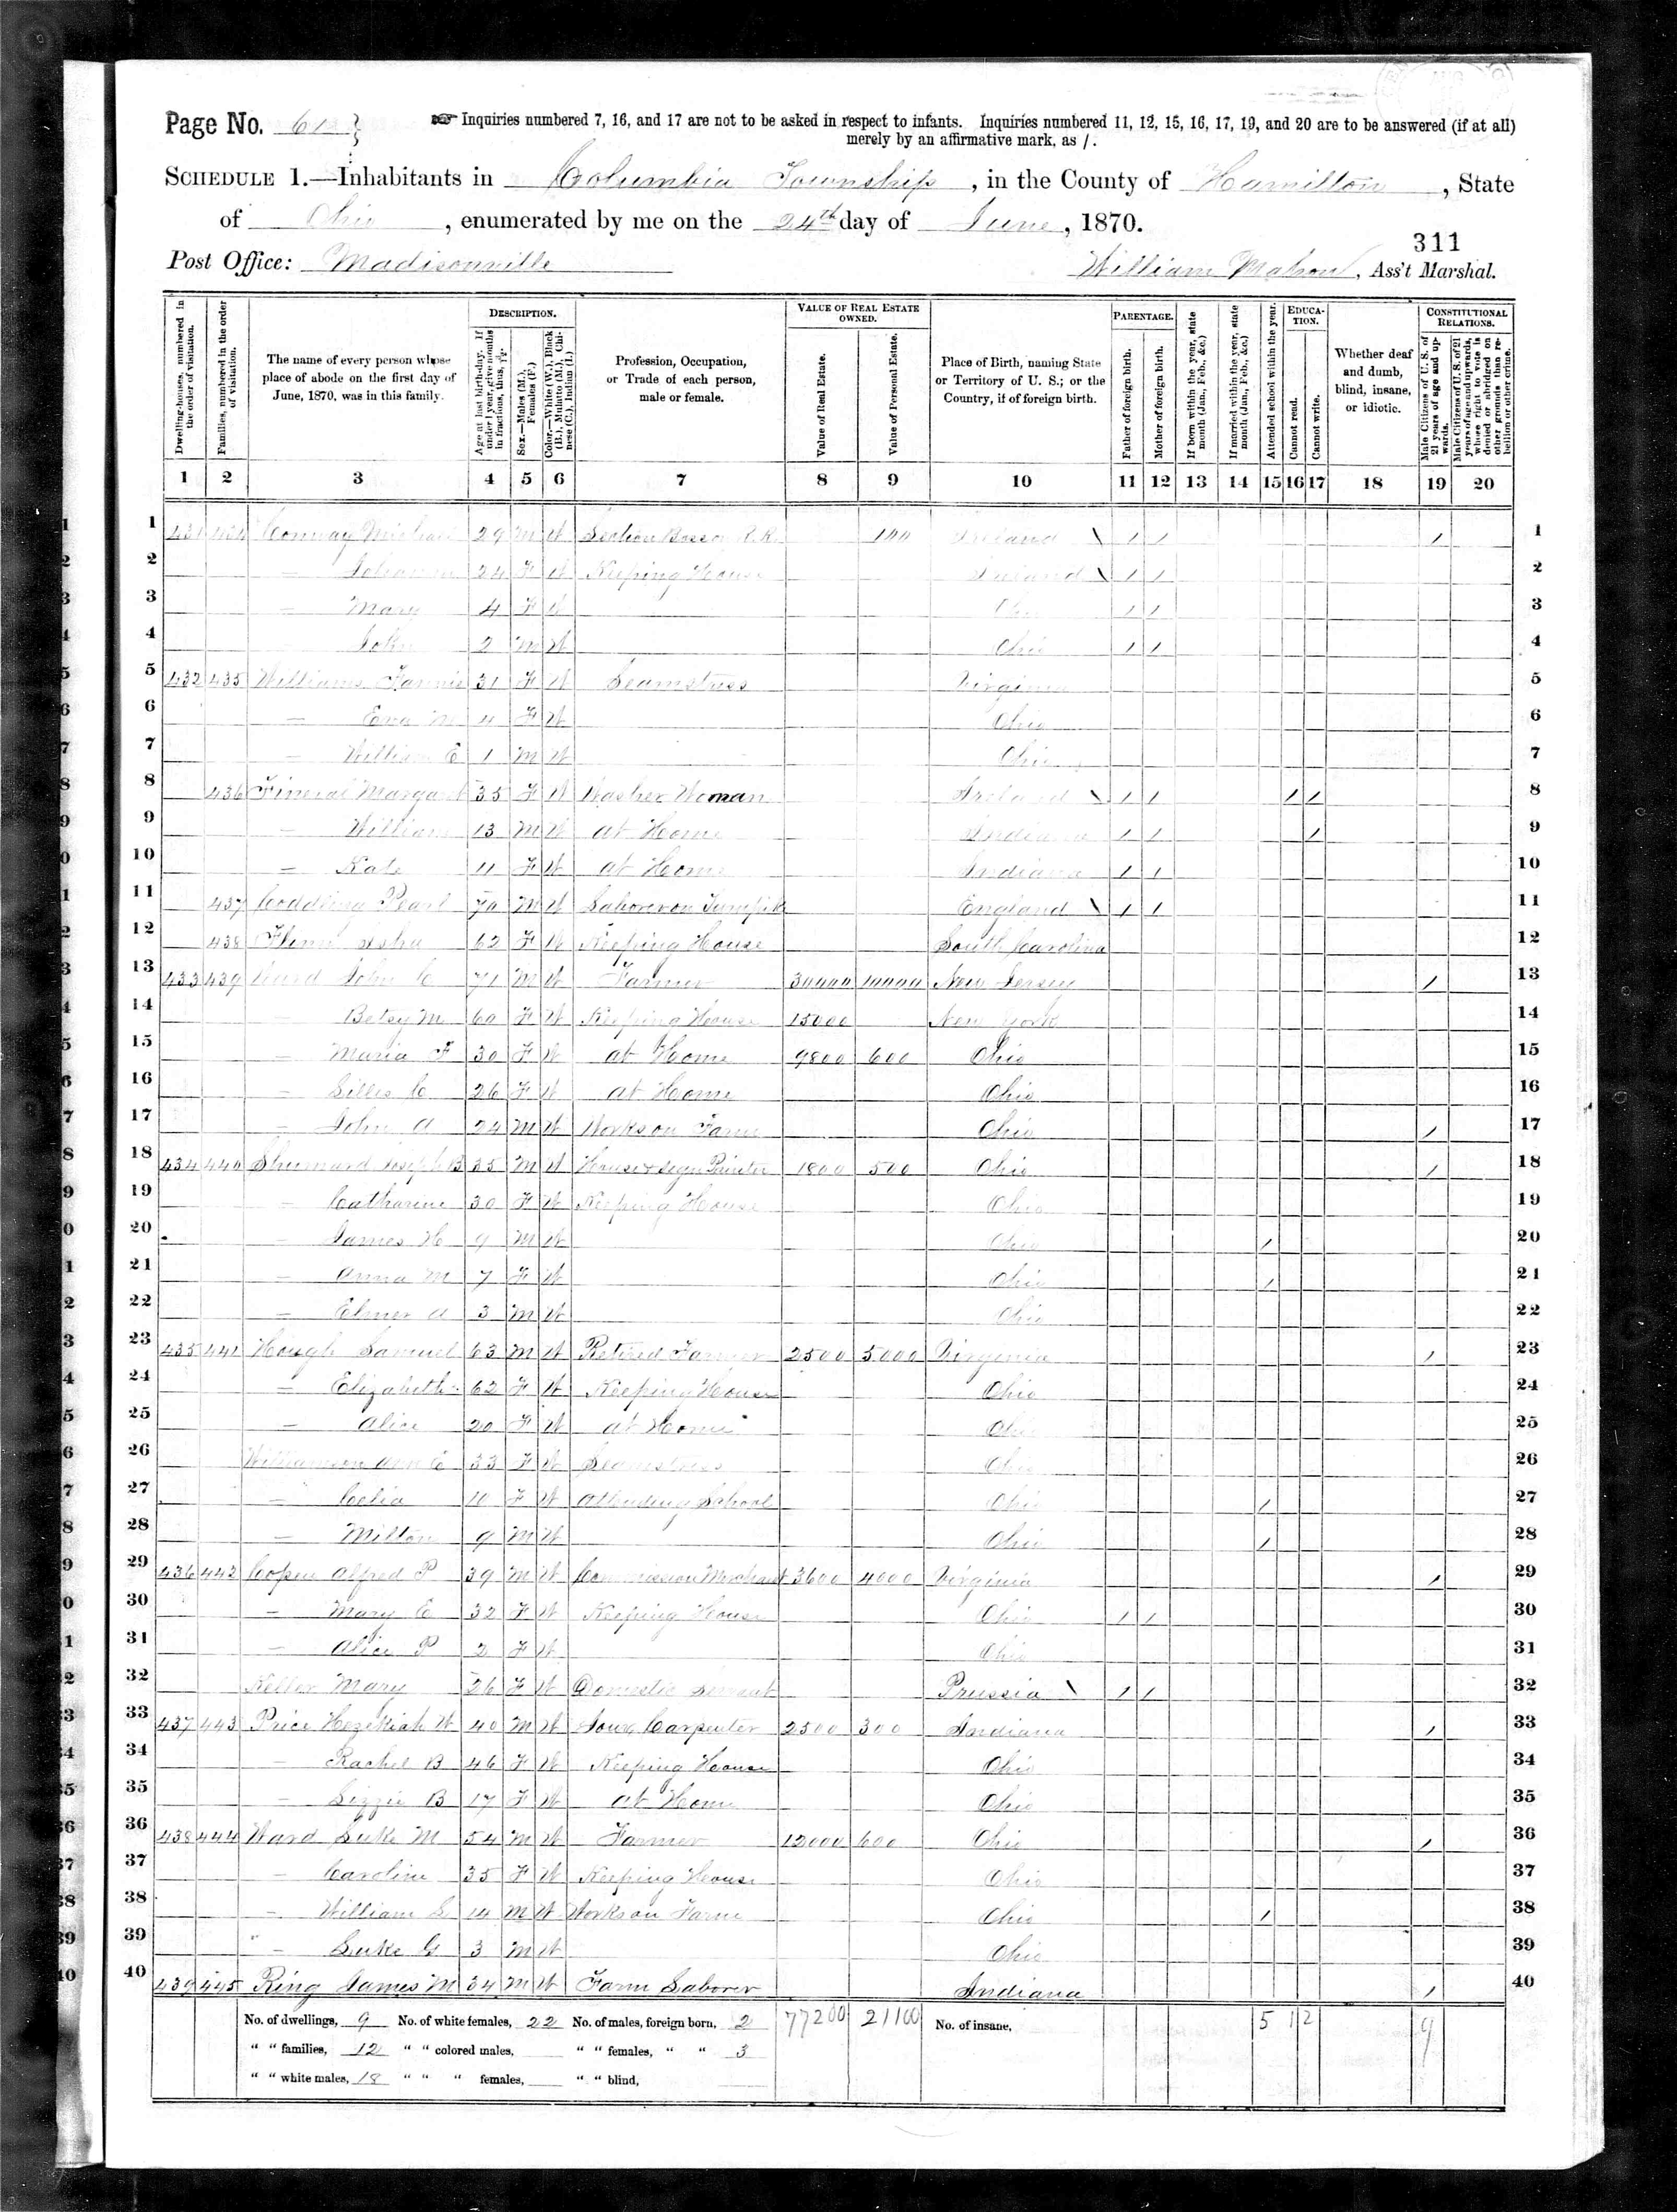 Page No. 61
☞ Inquiries numbered 7, 16, and 17 are not to be asked in respect to infants. Inquiries numbered 11, 12, 15, 16, 17, 19, and 20 are to be answered (if at all)
merely by an affirmative mark, as /.
SCHEDULE 1.—Inhabitants in Columbia Township, in the County of Hamilton, State
of Ohio, enumerated by me on the 24th day of June, 1870.
311
Post Office: Madisonville William, Ass't Marshal.
Dwelling-houses, numbered in the order of visitation.
Families, numbered in the order of visitation.
The name of every person whose place of abode on the first day of June, 1870, was in this family.
DESCRIPTION.
Age at last birth-day. If under 1 year, give months in fractions, thus,
Sex.—Males (M.), Females (F.)
Color.—White (W.), Black (B.), Mulatto (M.), Chinese (C.), Indian (I.)
Profession, Occupation, or Trade of each person, male or female.
VALUE OF REAL ESTATE OWNED.
Value of Real Estate.
Value of Personal Estate.
Place of Birth, naming State or Territory of U. S.; or the Country, if of foreign birth.
PARENTAGE.
Father of foreign birth.
Mother of foreign birth.
If born within the year, state month (Jan., Feb., &c.)
If married within the year, state month (Jan., Feb., &c.)
Attended school within the year.
EDUCATION.
Cannot read.
Cannot write.
Whether deaf and dumb, blind, insane, or idiotic.
CONSTITUTIONAL RELATIONS.
Male Citizens of U. S. of 21 years of age and upwards.
Male Citizens of U. S. of 21 years of age and upwards, whose right to vote is denied or abridged on other grounds than rebellion or other crime.
1 2 3 4 5 6 7 8 9 10 11 12 13 14 15 16 17 18 19 20
1 431 434 Conway Michael 29 M W Section Boss on R.R. 100 Ireland \ / / / 1
2 — 24 F W Keeping House Ireland \ / / 2
3 — Mary 4 F W Ohio / / 3
4 John 2 M W Ohio / / 4
5 432 435 Williams Fannie 31 F W Seamstress Virginia 5
6 — M 4 F W Ohio 6
7 — William E 1 M W Ohio 7
8 436 Margaret 35 F W Washer Woman Ireland \ / / / / 8
9 — William 13 M W at Home Indiana / / / 9
10 — Kate 11 F W at Home Indiana / / 10
11 437 Pearl 70 M W Laborer on Turnpik England \ / / 11
12 438 62 F W Keeping House South Carolina 12
13 433 439 John C 71 M W Farmer 30000 10000 New Jersey / 13
14 — Betsy M 60 F W Keeping House 15000 New York 14
15 — Maria F 30 F W at Home 9800 600 Ohio 15
16 — C 26 F W at Home Ohio 16
17 — John A 24 M W Works on Farm Ohio / 17
18 434 440 Shumard Joseph B 35 M W House & Sign Painter 1800 500 Ohio / 18
19 — Catharine 30 F W Keeping House Ohio 19
20 — James H 9 M W Ohio / 20
21 — Anna M 7 F W Ohio / 21
22 — Elmer A 3 M W Ohio 22
23 435 441 Hough Samuel 63 M W Retired Farmer 2500 5000 Virginia / 23
24 — Elizabeth 62 F W Keeping House Ohio 24
25 — Alice 20 F W at Home Ohio 25
26 Williamson Ann E 33 F W Seamstress Ohio 26
27 — Celia F W Attending School Ohio / 27
28 — Milton 9 M W Ohio / 28
29 436 442 Alfred P 39 M W Commission Merchant 3600 4000 Virginia / 29
30 — Mary E 32 F W Keeping House Ohio / / 30
31 — Alice P 2 F W Ohio 31
32 Keller Mary 26 F W Domestic Servant Prussia \ / / 32
33 437 443 Price Hezekiah W 40 M W Jour Carpenter 2500 300 Indiana / 33
34 — Rachel B 46 F W Keeping House Ohio 34
35 — Lizzie B 17 F W at Home Ohio 35
36 438 444 Ward Luke M 54 M W Farmer 12000 600 Ohio / 36
37 — Caroline 35 F W Keeping House Ohio 37
38 — William S 14 M W Works on Farm Ohio / 38
39 — Luke G 3 M W Ohio 39
40 439 445 Ring James M 34 M W Farm Laborer Indiana / 40
No. of dwellings, 9 No. of white females, 22 No. of males, foreign born, 2 77200 21100 No. of insane, 5 1 2 9
" " families, 12 " " colored males, " " females, " " 3
" " white males, 18 " " " females, " " blind,